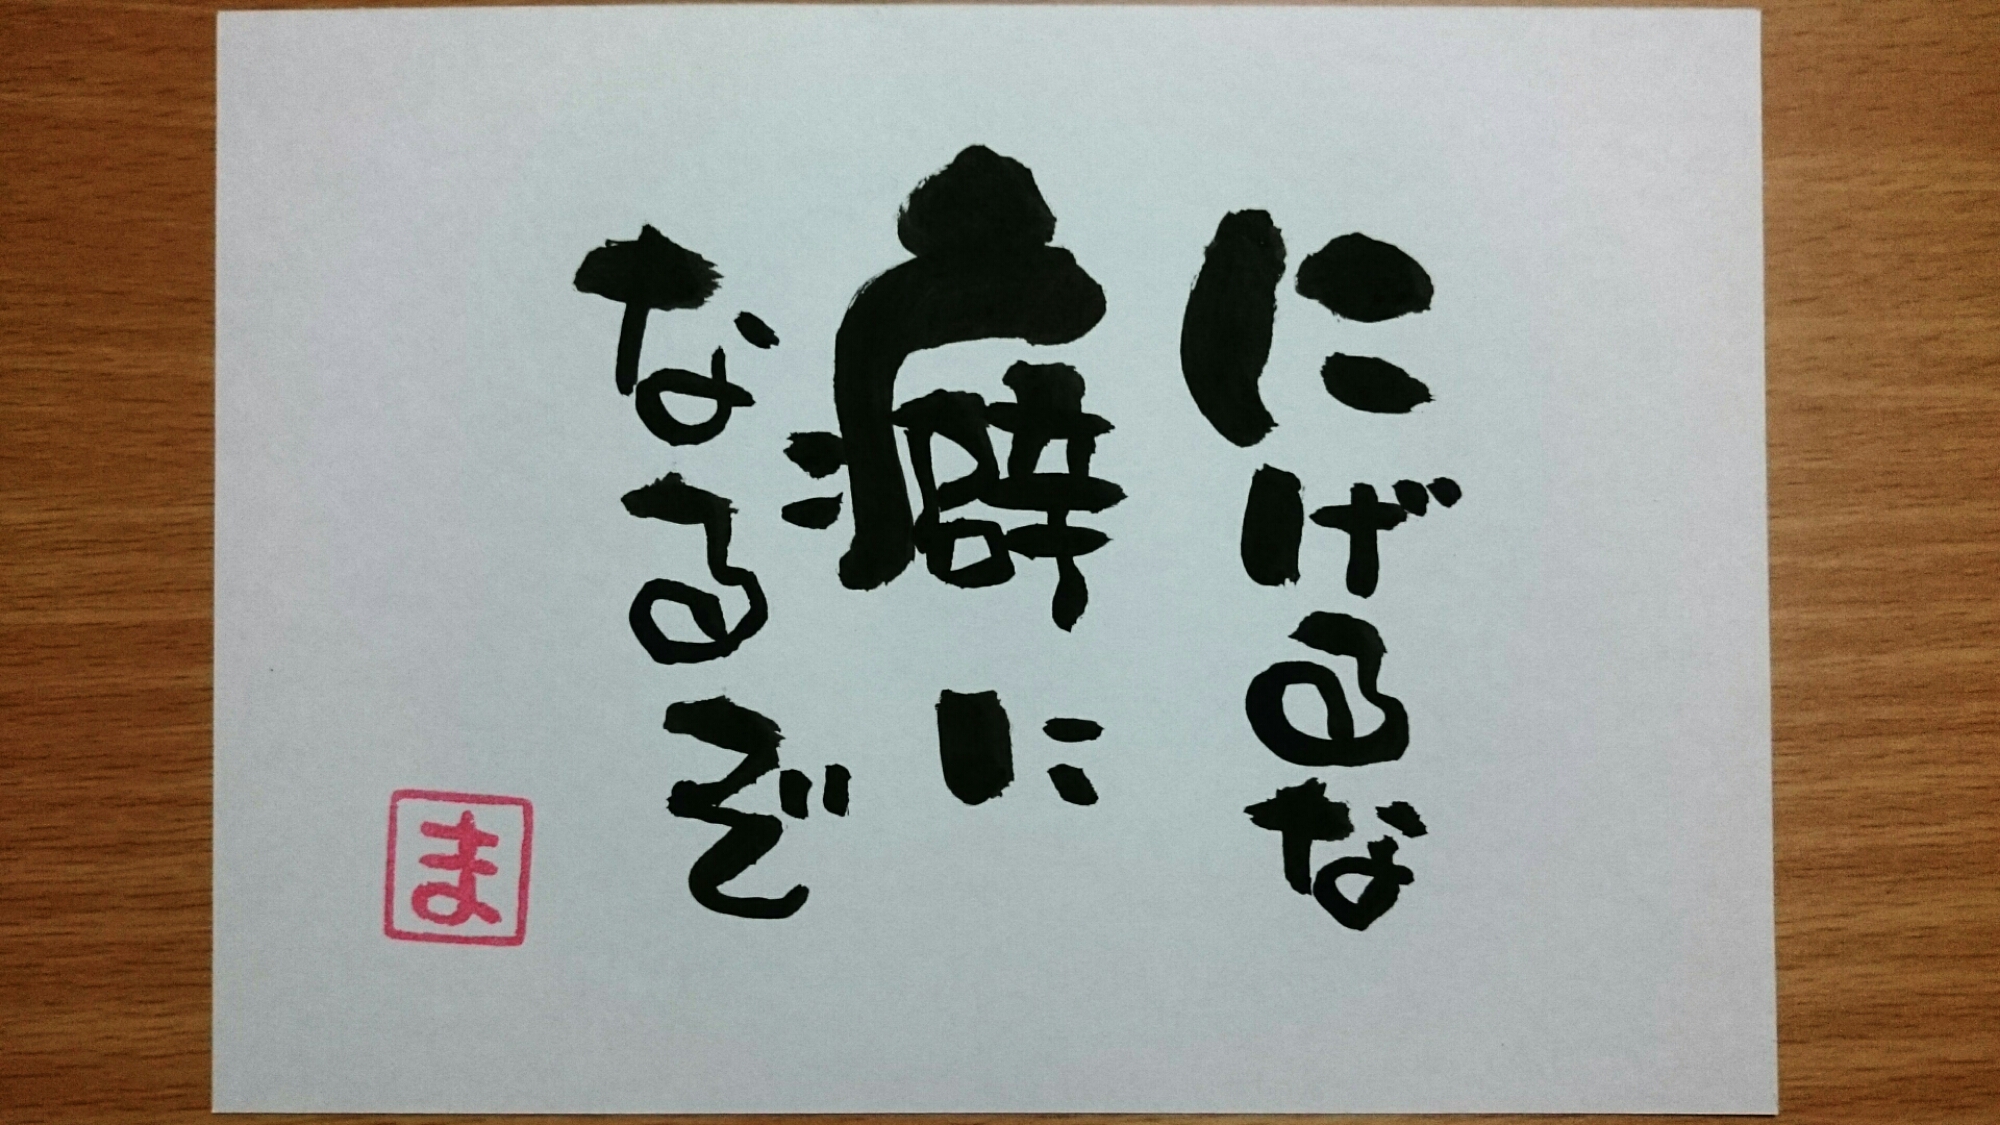 にげるな
癖に
なるぞ
ま